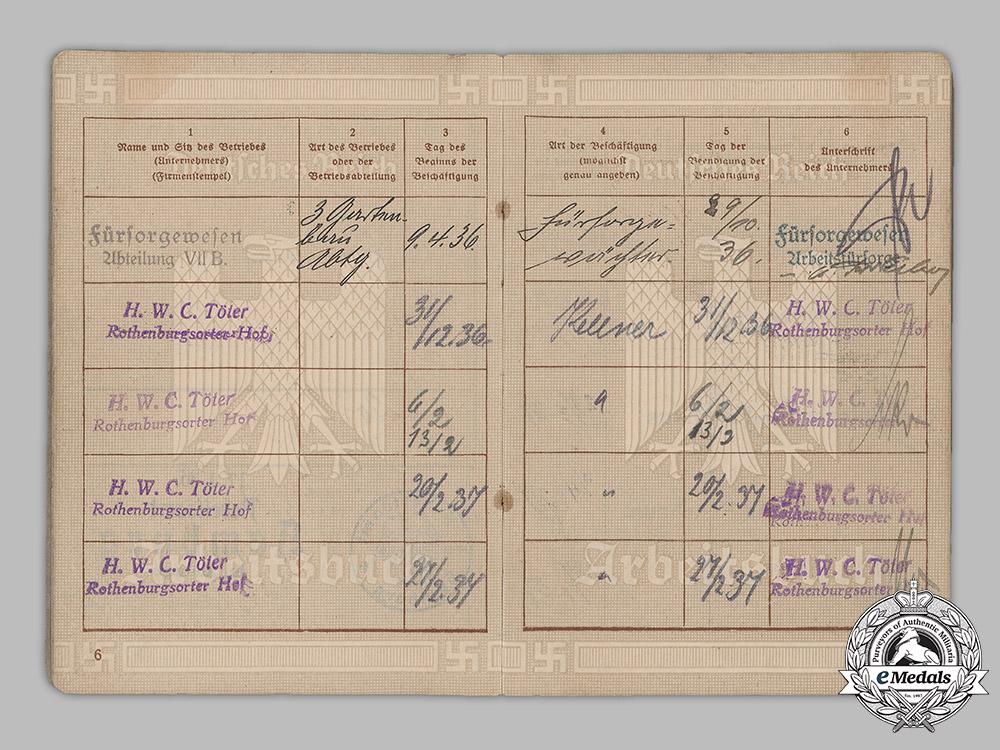 1
Name und Sitz des Betriebes
(Unternehmers)
(Firmenstempel)
2
Art des Betriebes
oder der
Betriebsabteilung
3
Tag des
Beginns der
Beschäftigung
4
Art der Beschäftigung
(möglichst
genau angeben)
5
Tag der
Beendigung der
Beschäftigung
6
Unterschrift
des Unternehmers
Deutsches Reich
Deutsches Reich
Fürsorgewesen
Abteilung VII B.
3 Garten-
bau
Abtg.
9.4.36.
Fürsorge-
wächter.
29/10.
36.
Fürsorgewesen
Arbeitsfürsorge
H. W. C. Töter
Rothenburgsorter Hof
31/12.36.
Kellner
31/12.36
H. W. C. Töter
Rothenburgsorter Hof
H. W. C. Töter
Rothenburgsorter Hof
6/2
13/2
"
6/2
13/2
H. W. C.
Rothenburgsorter
H. W. C. Töter
Rothenburgsorter Hof
20/2.37
"
20/2.37
H. W. C. Töter
Rothenburgsorter Hof
H. W. C. Töter
Rothenburgsorter Hof
27/2.37
"
27/2.37
H. W. C. Töter
Rothenburgsorter
Arbeitsbuch
Arbeitsbuch
6
Purveyors of Authentic Militaria
eMedals